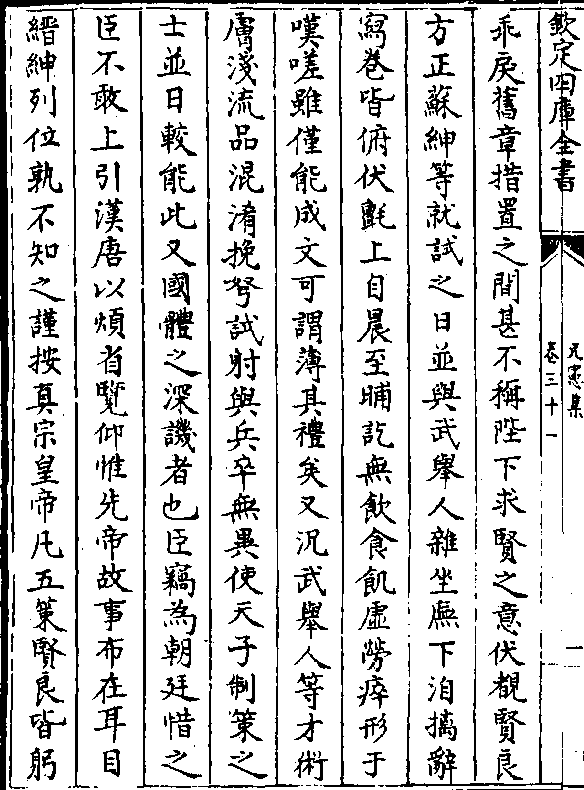 欽定四庫全書
元憲集
卷三十一
一
乖戾舊章措置之間甚不稱陛下求賢之意伏覩賢良
方正蘇紳等就試之日並與武舉人雜坐廡下洎摛辭
寫卷皆俯伏氊上自晨至晡訖無飲食飢虛勞瘁形于
嘆嗟雖僅能成文可謂薄其禮矣又況武舉人等才術
膚淺流品混淆挽弩試射與兵卒無異使天子制策之
士並日較能此又國體之深譏者也臣竊為朝廷惜之
臣不敢上引漢唐以煩省覽仰惟先帝故事布在耳目
縉紳列位孰不知之謹按真宗皇帝凡五策賢良皆躬